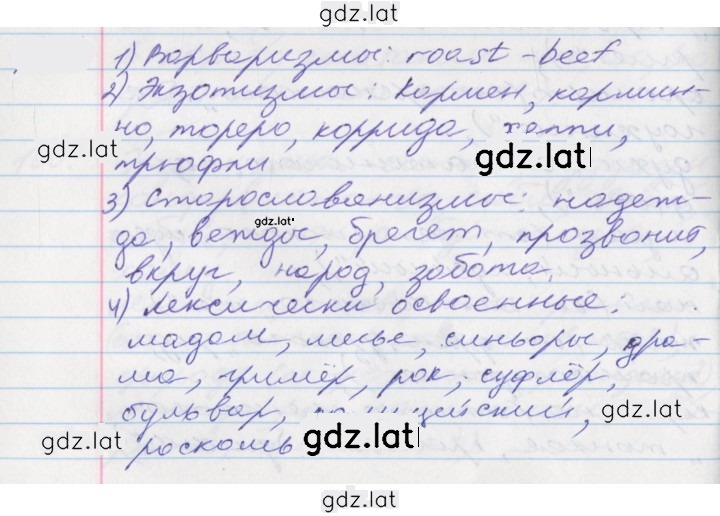 gdz.lat
1) Варваризмы: roast-beef
2) Экзотизмы: Кармен, кармин-
но, тореро, коррида, хеппи,
gdz.lat
gdz.lat
трюфли
3) Старославянизмы: надеж-
gdz.lat
да, вежды, брегет, прозвонит,
вкруг, народ, забота.
4) Лексически освоенные:
мадам, месье, синьоры, дра-
ма, гримёр, рок, суфлёр,
бульвар,
gdz.lat
gdz.lat
роскошь
gdz.lat
gdz.lat